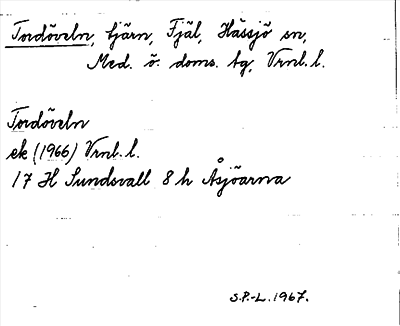 Tordöveln, tjärn, Fjäl, Hässjö sn,
Med. ö. doms. tg, Vrnl. l.
Tordöveln
ek (1966) Vrnl. l.
17 H Sundsvall 8 h Åsjöarna
S.P.-L. 1967.